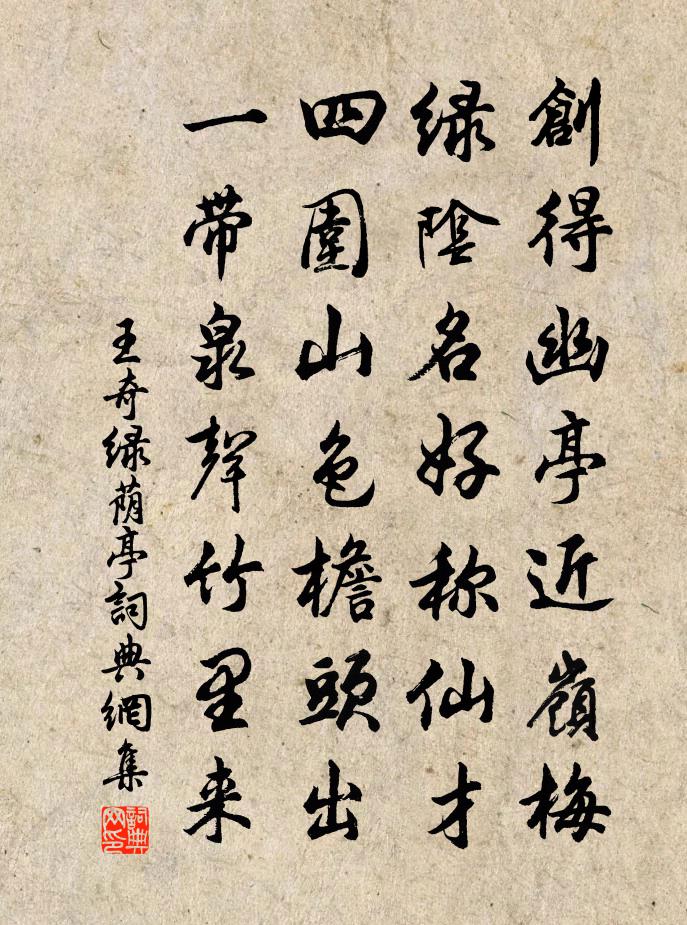 創得幽亭近嶺梅
緑陰名好称仙才
四圍山色檐頭出
一带泉聲竹里来
王奇緑荫亭詞典網集
詞典网印